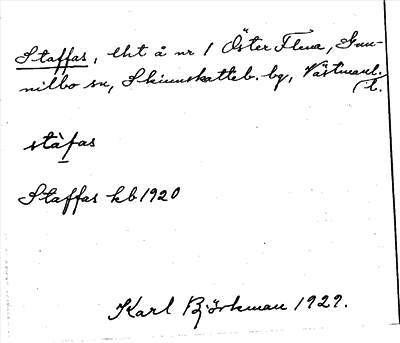 Staffas, lht å nr 1 Öster Flena, Gun-
nilbo sn, Skinnskatteb. bg, Västmanl.
l.
stàfas
Staffas kb 1920
Karl Björkman 1929.